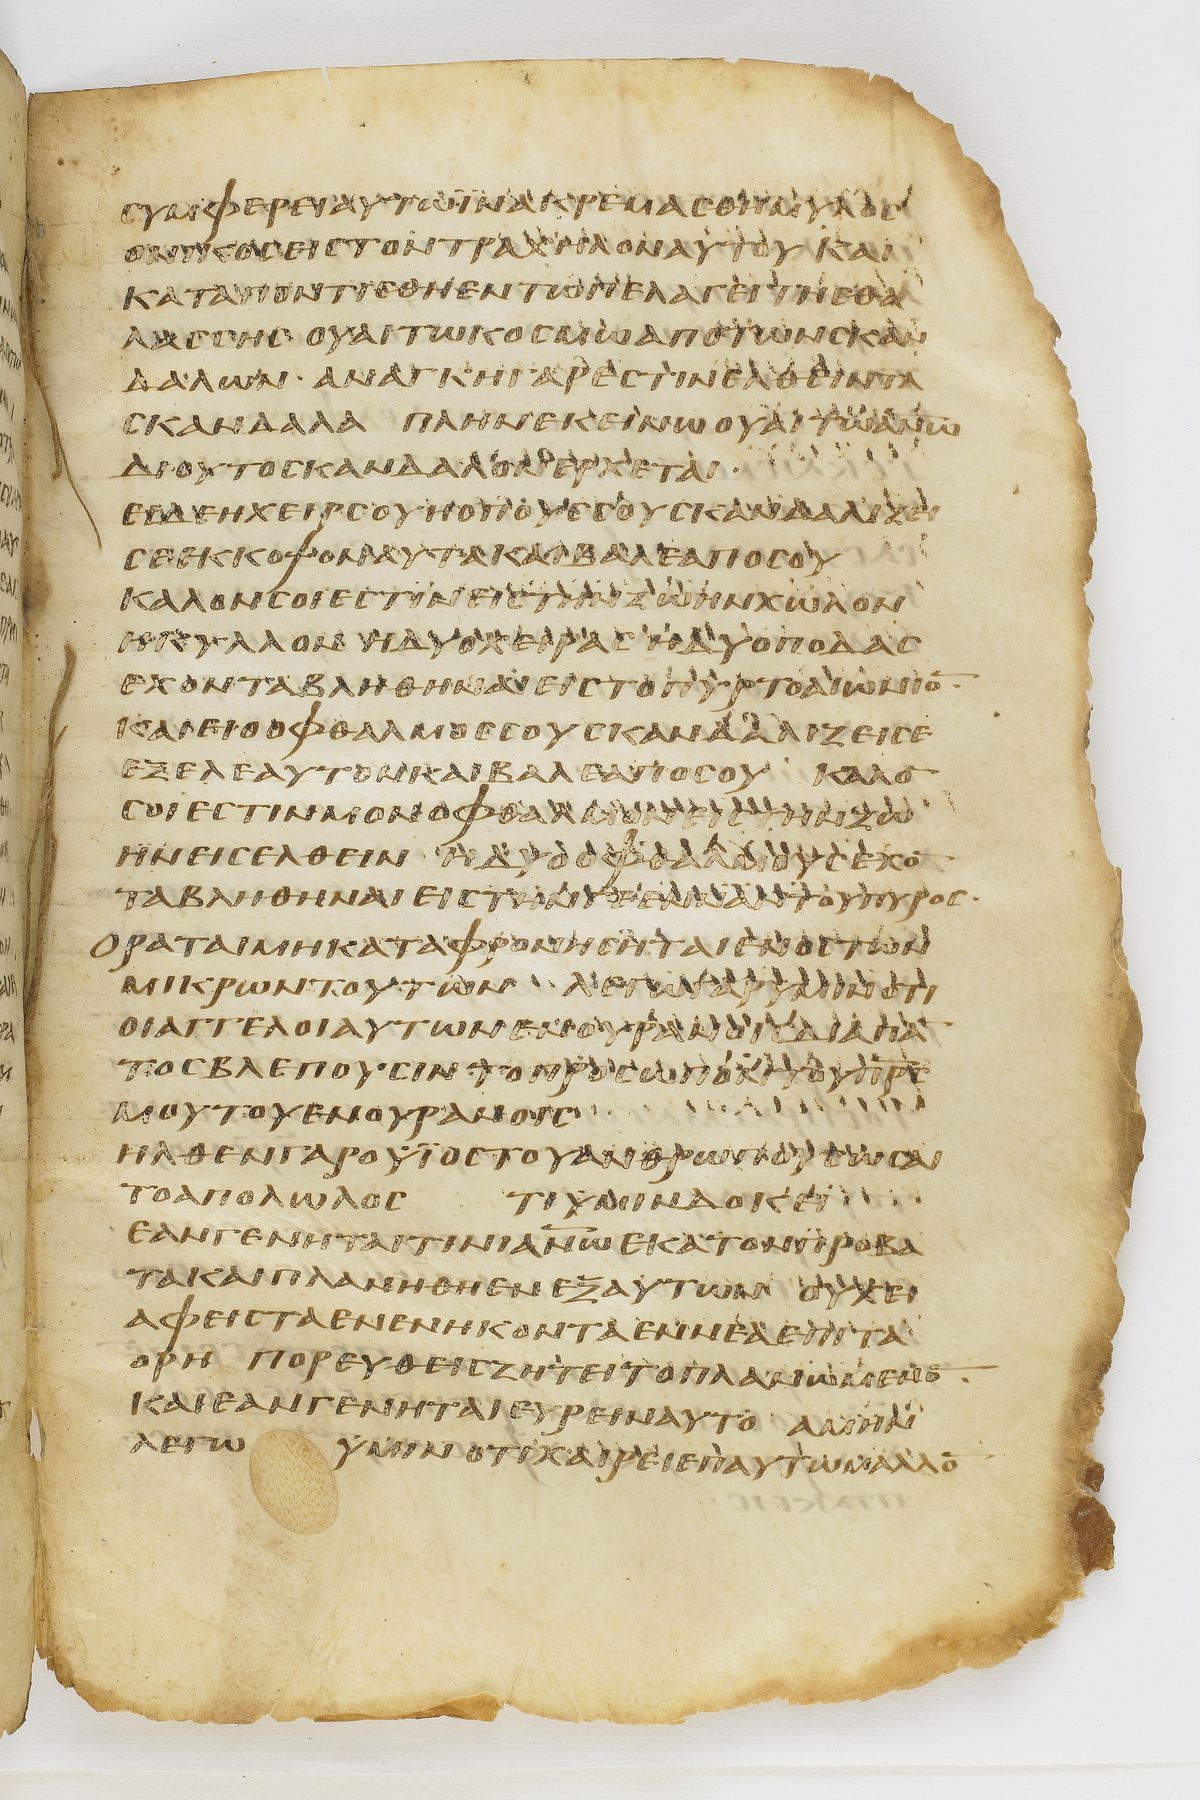 ϲυμφερειαυτωϊνακρεμαϲθημυλοϲ
ονικοϲειϲτοντραχηλοναυτουκαι
καταποντιϲθηεντωπελαγειτηϲθα
λαϲϲηϲ ουαιτωκοϲμωαποτωνϲκαν
δαλων · αναγκηγαρεϲτινελθειντα
ϲκανδαλα πληνεκεινωουαιτωαν̅ω̅
διουτοϲκανδαλονερχεται ·
ειδεηχειρϲουηοπουϲϲουϲκανδαλιζει
ϲεεκκοψοναυτακαιβαλεαποϲου
καλονϲοιεϲτινειϲτηνζωηνχωλον
ηκυλλον ηδυοχειραϲ ηδυοποδαϲ
εχονταβληθηναιειϲτοπυρτοαιωνιο̅ ·
καιειοοφθαλμοϲϲουϲκανδαλιζειϲε
εξελεαυτονκαιβαλεαποϲου καλο̅
ϲοιεϲτινμονοφθαλμονειϲτηνζω
ηνειϲελθειν ηδυοοφθαλμουϲεχο̅
ταβληθηναιειϲτηνγεενναντουπυροϲ ·
οραταιμηκαταφρονηϲηταιενοϲτων
μικρωντουτων λεγωγαρυμινοτι
οιαγγελοιαυτωνενουρανοιϲδιαπα̅
τοϲβλεπουϲιν τοπροϲωποντουπρ̅ϲ̅
μουτουενουρανοιϲ
ηλθενγαρουϊοϲτουανθρωπουϲωϲαι
τοαπολωλοϲ τιυμινδοκει
εανγενηταιτινιαν̅ω̅εκατονπροβα
τακαιπλανηθηενεξαυτων ουχει
αφειϲταενενηκονταεννεαεπιτα
ορη πορευθειϲζητειτοπλανωμενο̅ ·
καιεανγενηταιευρειναυτο αμην
λεγω υμινοτιχαιρειεπαυτωμαλλο̅